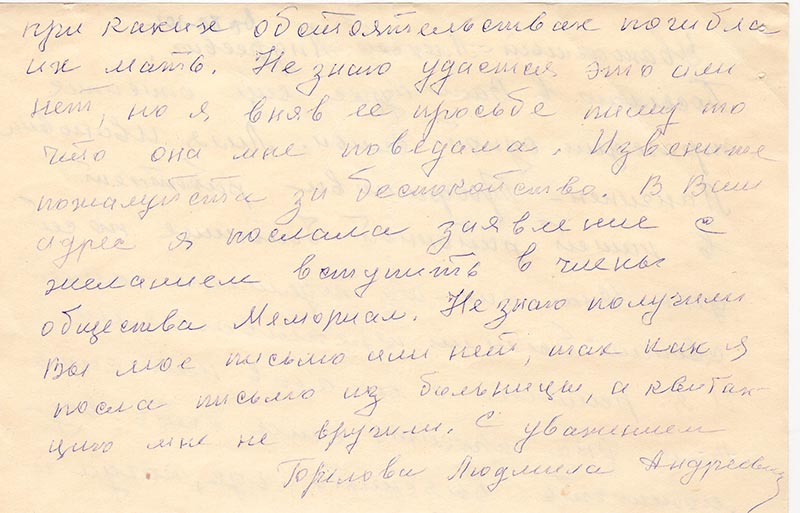 при каких обстоятельствах погибла
их мать. Не знаю удастся это или
нет, но я вняв ее просьбе пишу то
что она мне поведала. Извените
пожалуйста за беспокойство. В Ваш
адрес я послала заявление с
желанием вступить в члены
общества Мемориал. Не знаю получили
Вы мое письмо или нет, так как я
посла письмо из больницы, а квитан-
цию мне не вручили. С уважением
Горелова Людмила Андреевна